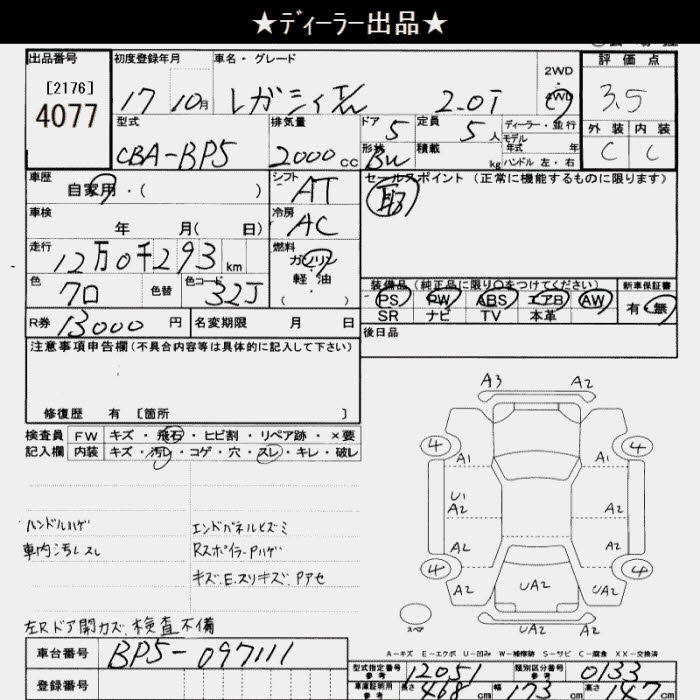 ★ディーラー出品★
出品番号 初度登録年月 車名・グレード 2WD 評価点
[2176]
4077 17 10月 レガシィ 2.0i 4WD 3.5
型式 排気量 ドア 定員 ディーラー・並行 外装 内装
5 5人 モデル年式 年
CBA-BP5 2000cc 形状 積載 kg ハンドル 左・右 C C
車歴 シフト セールスポイント (正常に機能するものに限ります)
自家用・( ) AT 取
車検 冷房
年 月( 日) AC
走行 燃料
12万0千293km ガソリン
色 色替 色コード 軽・油 装備品(純正品に限り○をつけてください) 新車保証書
クロ 32J ( ) PS PW ABS エアB AW 有・無
SR ナビ TV 本革
R券 13000円 名変期限 月 日 後日品
注意事項申告欄(不具合内容等は具体的に記入して下さい)
修復歴 有 [箇所 ]
検査員 FW キズ・飛石・ヒビ割・リペア跡・×要
記入欄 内装 キズ・汚レ・コゲ・穴・スレ・キレ・破レ
A3 A2
4 4
A1 A1
U1
A2 A2
A2 A2
4 4
A2 UA2 UA2
スペア UA2 A2
ハンドルハゲ エンドパネルヒズミ
車内汚レスレ RスポイラーPハゲ
キズ.E.スリキズ.Pアセ
左Rドア開カズ.検査不備
A-キズ E-エクボ U-凹み W-補修跡 S-サビ C-腐食 XX-交換済
車台番号 BP5-097111
型式指定番号 12051 類別区分番号 0133
登録番号 車庫証明用 参考 長さ 468cm 幅 173cm 高さ 147cm